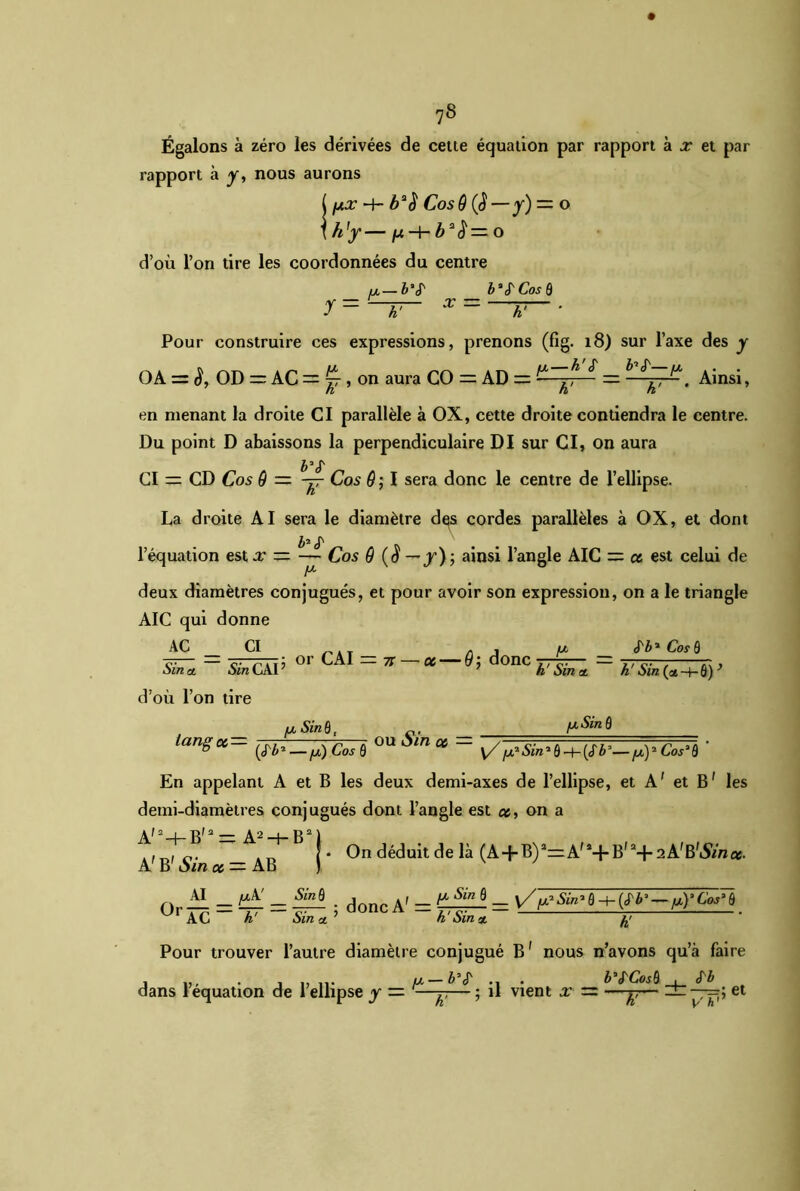 78
Égalons à zéro les dérivées de cette équation par rapport à x et par
rapport à y, nous aurons
{ μx + b²δ Cos θ (δ — y) = o
{ h'y — μ + b²δ = o
d'où l'on tire les coordonnées du centre
y = (μ — b²δ)/h'   x = b²δ Cos θ/h' .
Pour construire ces expressions, prenons (fig. 18) sur l'axe des y
OA = δ, OD = AC = μ/h', on aura CO = AD = (μ — h'δ)/h' = (b²δ — μ)/h'. Ainsi,
en menant la droite CI parallèle à OX, cette droite contiendra le centre.
Du point D abaissons la perpendiculaire DI sur CI, on aura
CI = CD Cos θ = b²δ/h' Cos θ; I sera donc le centre de l'ellipse.
La droite AI sera le diamètre des cordes parallèles à OX, et dont
l'équation est x = b²δ/μ Cos θ (δ — y); ainsi l'angle AIC = α est celui de
deux diamètres conjugués, et pour avoir son expression, on a le triangle
AIC qui donne
AC/Sin α = CI/Sin CAI; or CAI = π — α — θ; donc μ/(h' Sin α) = δb² Cos θ/(h' Sin (α + θ)),
d'où l'on tire
tang α = μ Sin θ,/((δb² — μ) Cos θ) ou Sin α = μ Sin θ/√(μ² Sin² θ + (δb² — μ)² Cos² θ) .
En appelant A et B les deux demi-axes de l'ellipse, et A' et B' les
demi-diamètres conjugués dont l'angle est α, on a
A'² + B'² = A² + B² }
A' B' Sin α = AB } . On déduit de là (A + B)² = A'² + B'² + 2A'B' Sin α.
Or AI/AC = μA'/h' = Sin θ/Sin α; donc A' = μ Sin θ/(h' Sin α) = √(μ² Sin² θ + (δb² — μ)² Cos² θ)/h' .
Pour trouver l'autre diamètre conjugué B' nous n'avons qu'à faire
dans l'équation de l'ellipse y = (μ — b²δ)/h'; il vient x = b²δ Cos θ/h' ± δb/√h'; et